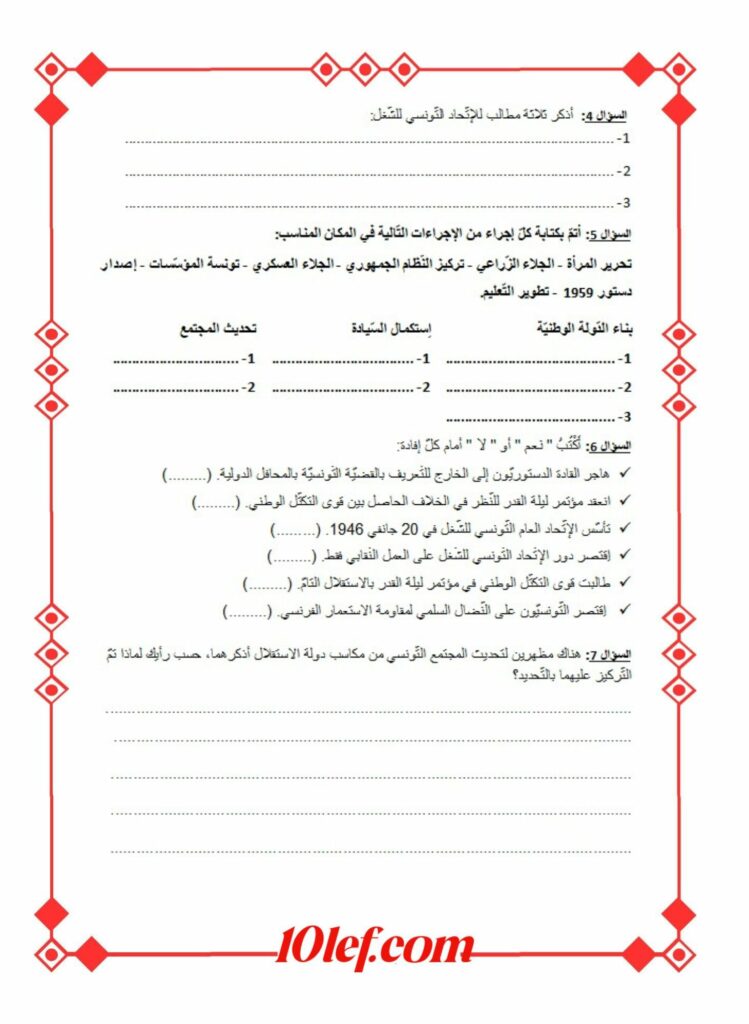 السؤال 4: أذكر ثلاثة مطالب للإتّحاد التّونسي للشّغل:
1- ........................................
2- ........................................
3- ........................................
السؤال 5: أتمّ بكتابة كلّ إجراء من الإجراءات التّالية في المكان المناسب:
تحرير المرأة - الجلاء الزّراعي - تركيز النّظام الجمهوري - الجلاء العسكري - تونسة المؤسّسات - إصدار
دستور 1959 - تطوير التّعليم.
بناء الدّولة الوطنيّة إستكمال السّيادة تحديث المجتمع
1- .................... 1- .................... 1- ....................
2- .................... 2- .................... 2- ....................
3- ....................
السؤال 6: أَكْتُبُ " نعم " أو " لا " أمام كلّ إفادة:
✓ هاجر القادة الدستوريّون إلى الخارج للتّعريف بالقضيّة التّونسيّة بالمحافل الدولية. (.........)
✓ انعقد مؤتمر ليلة القدر للنّظر في الخلاف الحاصل بين قوى التكتّل الوطني. (.........)
✓ تأسّس الإتّحاد العام التّونسي للشّغل في 20 جانفي 1946. (.........)
✓ إقتصر دور الإتّحاد التّونسي للشّغل على العمل النّقابي فقط. (.........)
✓ طالبت قوى التكتّل الوطني في مؤتمر ليلة القدر بالاستقلال التامّ. (.........)
✓ إقتصر التّونسيّون على النّضال السلمي لمقاومة الاستعمار الفرنسي. (.........)
السؤال 7: هناك مظهرين لتحديث المجتمع التّونسي من مكاسب دولة الاستقلال أذكرهما، حسب رأيك لماذا تمّ
التّركيز عليهما بالتّحديد؟
........................................
........................................
........................................
........................................
........................................
10lef.com